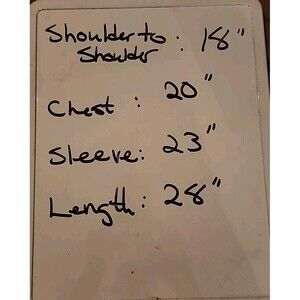 Shoulder to : 18"
Shoulder
Chest : 20"
Sleeve: 23"
Length: 28"